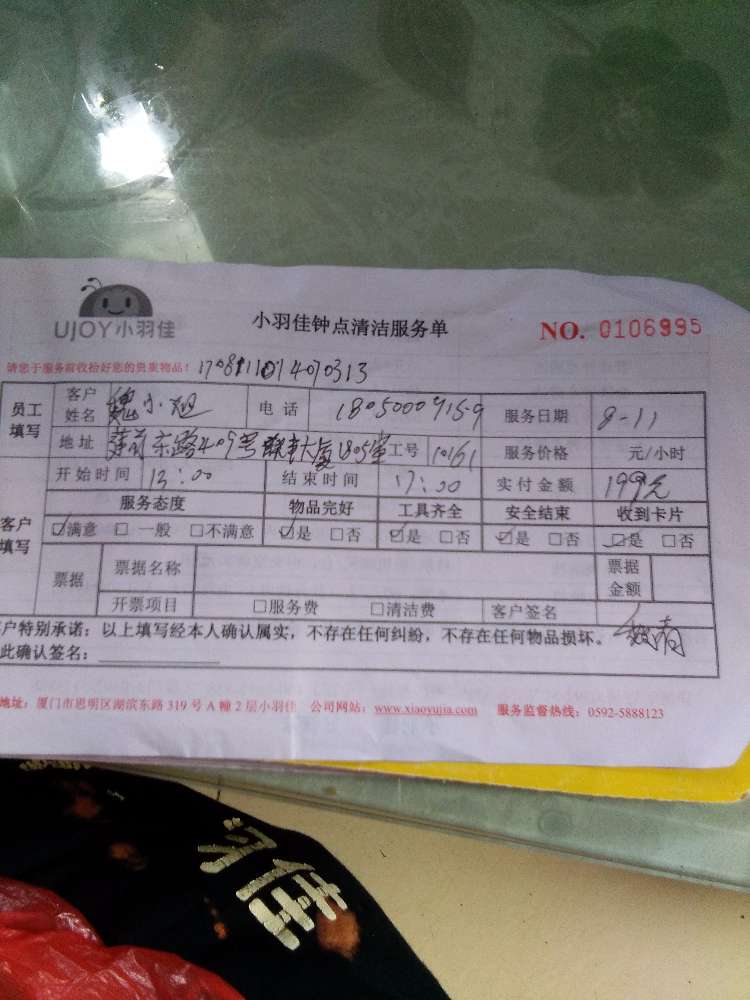 UJOY小羽佳 小羽佳钟点清洁服务单 NO. 0106995
请您于服务前收拾好您的贵重物品! 170811014070313
员工填写 客户姓名 魏小姐 电话 18050007159 服务日期 8-11
地址 东路409号 大厦1805室 工号 10161 服务价格 元/小时
开始时间 13:00 结束时间 17:00 实付金额 199元
客户填写 服务态度 物品完好 工具齐全 安全结束 收到卡片
☑满意 □一般 □不满意 ☑是 □否 ☑是 □否 ☑是 □否 ☑是 □否
票据 票据名称 票据金额
开票项目 □服务费 □清洁费 客户签名
户特别承诺:以上填写经本人确认属实,不存在任何纠纷,不存在任何物品损坏。
此确认签名:
地址:厦门市思明区湖滨东路 319 号 A 幢 2 层小羽佳 公司网站:www.xiaoyujia.com 服务监督热线:0592-5888123
羽佳